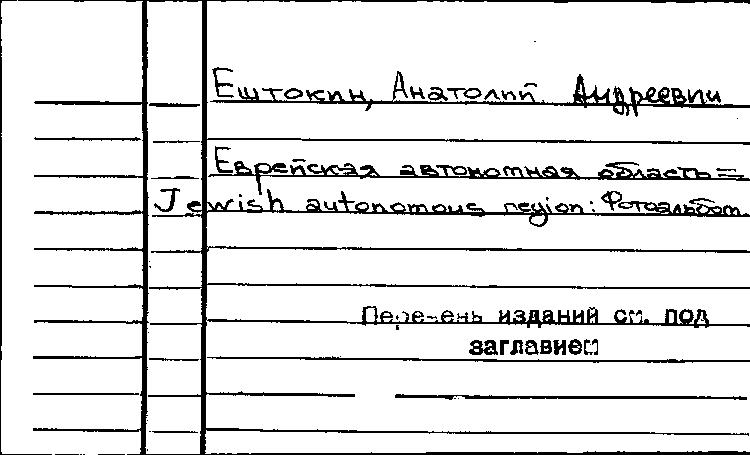 Ештокин, Анатолий Андреевич
Еврейская автономная область =
Jewish autonomous region: Фотоальбом
Перечень изданий см. под
заглавием